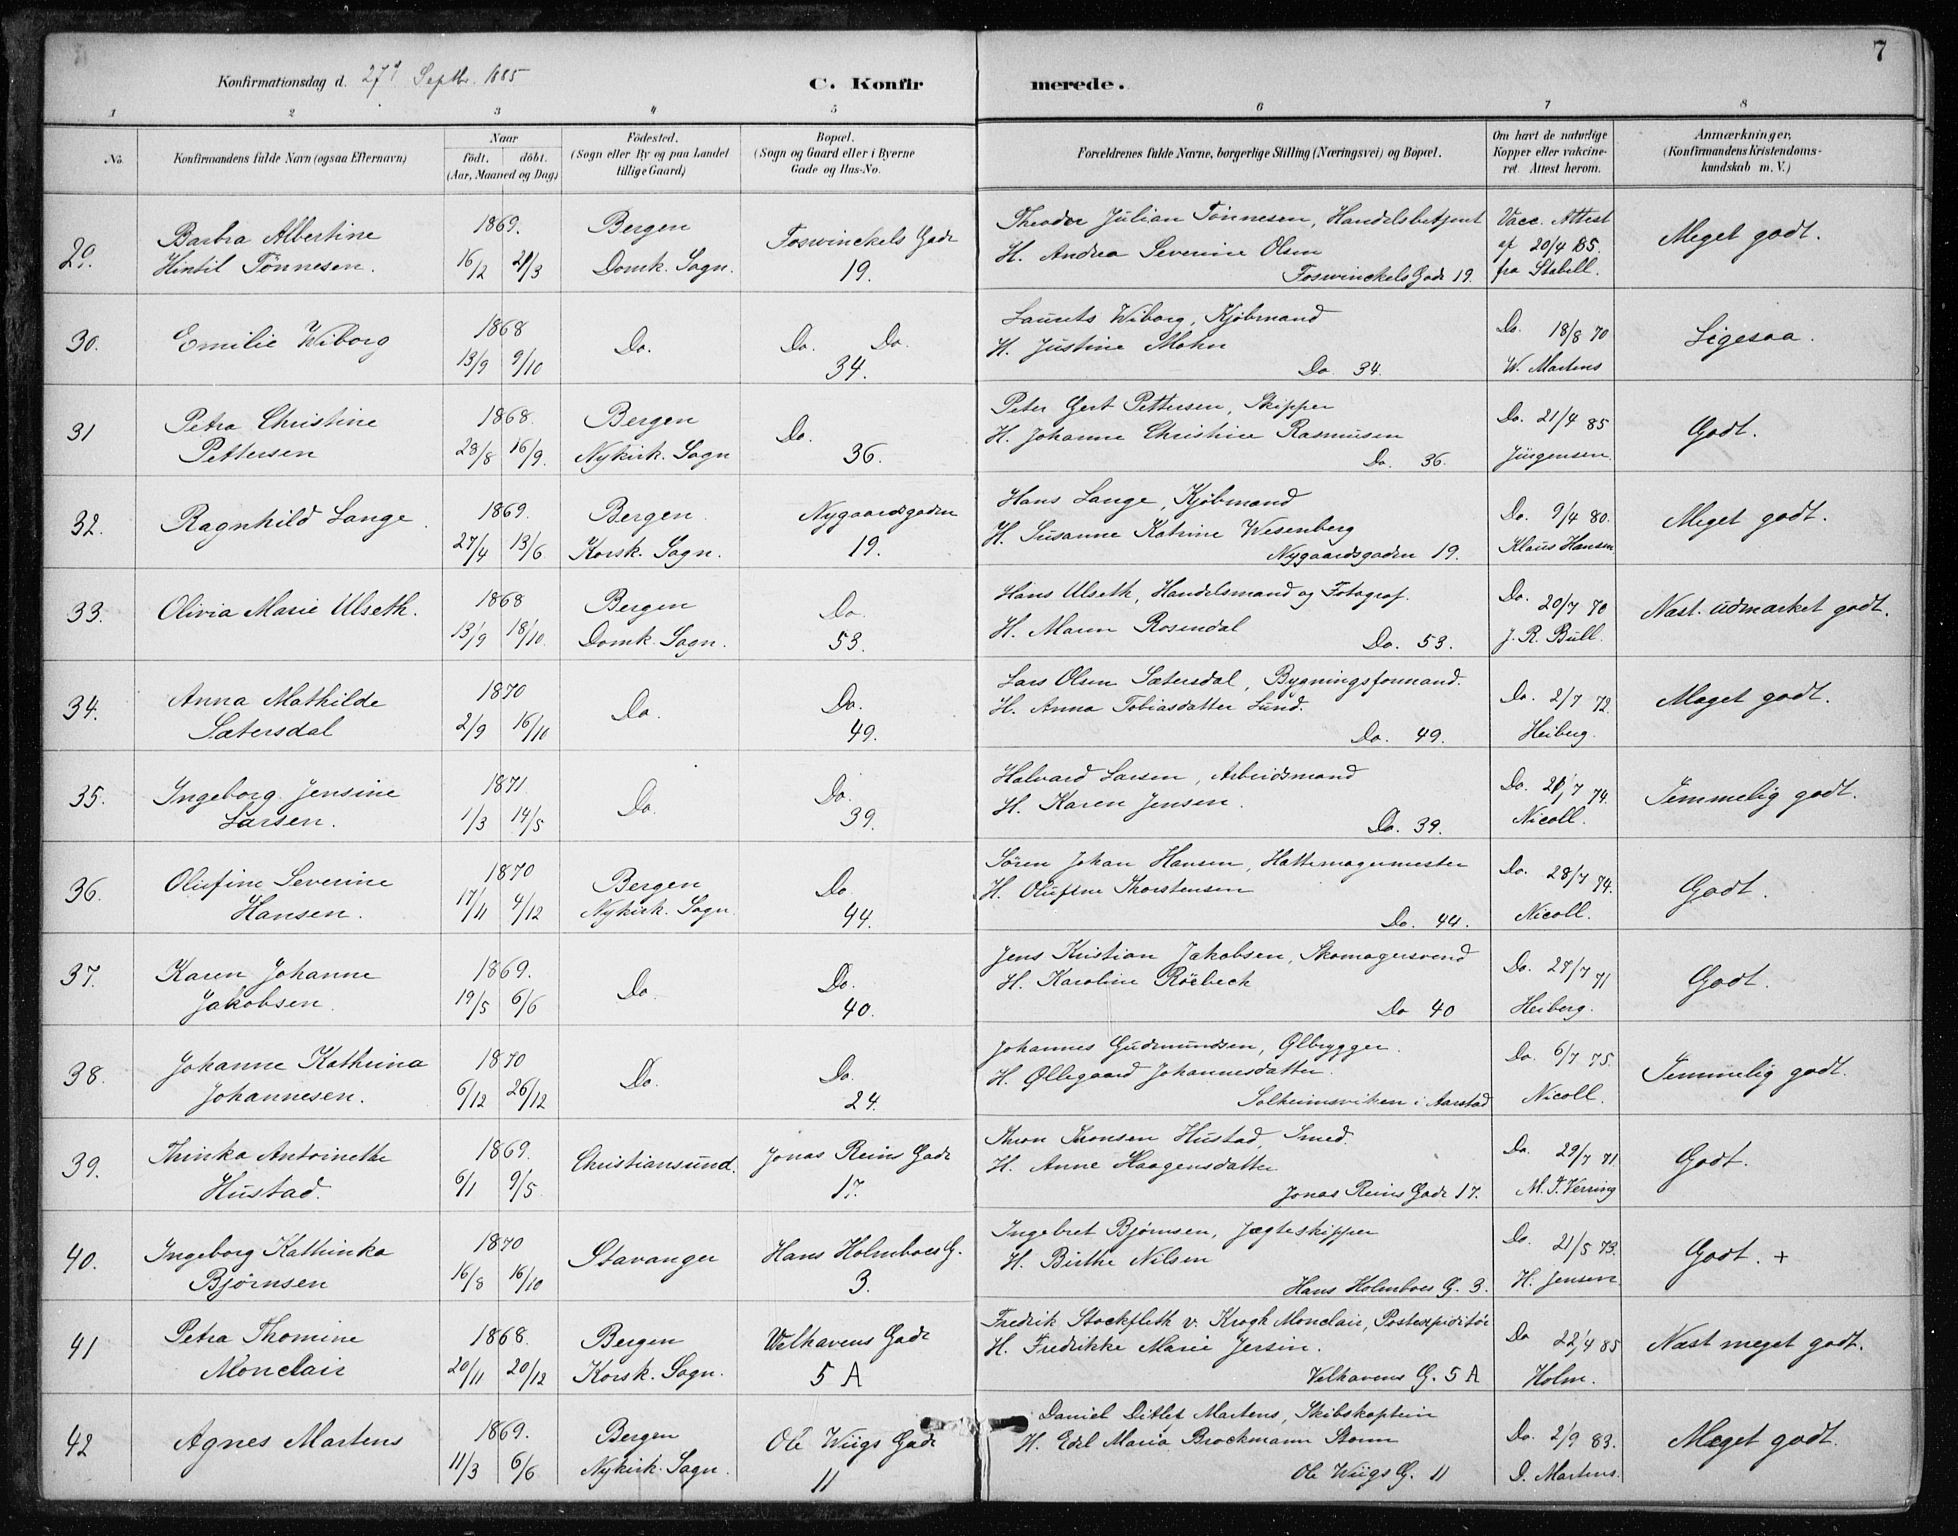 7
Konfirmationsdag d. 27de Septbr. 1885
C. Konfirmerede.
1 2 3 4 5 6 7 8
No.
Konfirmandens fulde Navn (ogsaa Efternavn)
Naar
født. døbt.
(Aar, Maaned og Dag)
Fødested.
(Sogn eller By og paa Landet
tillige Gaard)
Bopæl.
(Sogn og Gaard eller i Byerne
Gade og Hus-No.
Forældrenes fulde Navne, borgerlige Stilling (Næringsvei) og Bopæl.
Om havt de naturlige
Kopper eller vakcine-
ret. Attest herom.
Anmærkninger,
(Konfirmandens Kristendoms-
kundskab m. V.)
29. Barbra Albertine 1869. Bergen Foswinckels Gade Theodor Julian Tönnesen, Handelsbetjent Vacc. Attest Meget godt.
Hintil Tönnesen. 16/2 21/3 Domk. Sogn. 19. H. Andrea Severine Olsen af 20/4 85.
Foswinckels Gade 19. fra Stabell.
30. Emilie Wiborg 1868 Do. Do. Do. Laurets Wiborg, Kjöbmand Do. 18/8 70 Ligesaa.
13/9 9/10 34. H. Justine Mohn
Do 34. W. Martens
31 Petra Christine 1868. Bergen Do. Peter Gert Pettersen, Skipper Do. 21/4 85 Godt.
Pettersen 23/8 16/9. Nykirk. Sogn 36. H. Johanne Christine Rasmusen
Do. 36. Jürgensen
32. Ragnhild Lange 1869. Bergen. Nygaardsgaden Hans Lange, Kjöbmand Do. 9/4 80. Meget godt.
27/4 13/6 Korsk. Sogn. 19. H. Susanne Katrine Wesenberg
Nygaardsgaden 19. Klaus Hansen
33. Olivia Marie Ulseth. 1868 Bergen Do. Hans Ulseth, Handelsmand og Fotograf. Do. 20/7 70 Næst. udmærket godt.
13/9 18/10. Domk. Sogn. 53. H. Maren Rosendal Do. 53. J. R. Bull.
34. Anna Mathilde 1870 Do. Do. Lars Olsen Sætersdal, Bygningsformand. Do. 2/7 72. Meget godt.
Sætersdal 2/9 16/10 49. H. Anna Tobiasdatter Lund.
Do. 49. Heiberg.
35. Ingeborg Jensine 1871 Do. Do. Halvard Larsen, Arbeidsmand Do. 21/7 74. Temmelig godt.
Larsen. 1/3 14/5 39. H. Karen Jensen.
Do. 39. Nicoll.
36. Olufine Severine 1870 Bergen Do. Sören Johan Hansen, Hattemagermester Do. 28/7 74. Godt.
Hansen. 17/11 4/12 Nykirk. Sogn. 44. H. Olufine Thorstensen
Do. 44. Nicoll.
37. Karen Johanne 1869. Do. Do. Jens Kristian Jakobsen, Skomagersvend Do. 27/7 71 Godt.
Jakobsen. 19/5 6/6 40. H. Karoline Röebech
Do 40 Heiberg.
38. Johanne Kathrina 1870 Do. Do. Johannes Gudmundsen, Ølbrygger. Do. 6/7 75. Temmelig godt.
Johannesen. 6/12 26/12 24. H. Øllegaard Johannesdatter.
Solheimsviken i Aarstad Nicoll.
39. Thinka Antoinette 1869. Christiansund. Jonas Reins Gade Thron Thronsen Hustad, Smed. Do. 29/7 71 Godt.
Hustad. 6/1 9/5. 17. H. Anne Haagensdatter
Jonas Reins Gade 17. M. T. Verring
40. Ingeborg Kathinka 1870 Stavanger Hans Holmboes G. Ingebret Bjørnsen, Jægteskipper Do. 21/5 73. Godt. +
Bjørnsen 16/8 16/10 3. H. Birthe Nilsen
Hans Holmboes G. 3. H. Jensen
41 Petra Thomine 1868. Bergen Welhavens Gade Fredrik Stockfleth v. Krogh Monclair, Postexpeditör Do 22/4 85 Næst meget godt.
Monclair 20/11 20/12 Korsk. Sogn. 5 A H. Fredrikke Marie Jersin.
Velhavens G. 5 A Holm.
42 Agnes Martens 1869. Bergen Ole Wiigs Gade Daniel Ditlef Martens, Skibskaptein Do. 2/9 83. Meget godt.
11/3 6/6 Nykirk. Sogn. 11 H. Edel Maria Brockmann Storm
Ole Wiigs G. 11 D. Martens.